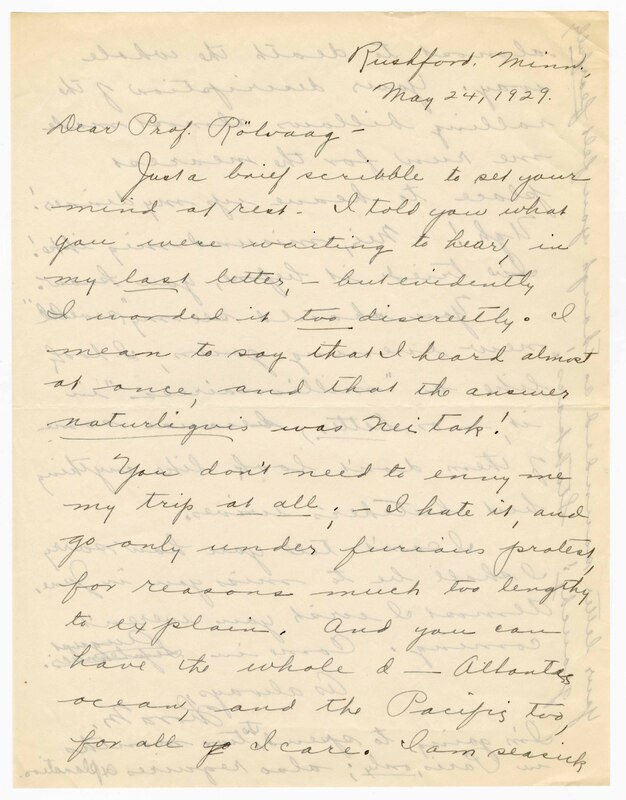 Rushford, Minn.,
May 24, 1929.
Dear Prof. Rölvaag –
Just a brief scribble to set your
mind at rest. I told you what
you were waiting to hear, in
my last letter, – but evidently
I worded it too discreetly. I
mean to say that I heard almost
at once, and that the answer
naturligvis was Nei tak!
You don't need to envy me
my trip at all; – I hate it, and
go only under furious protest,
for reasons much too lengthy
to explain. And you can
have the whole d — Atlantes
ocean, and the Pacific too,
for all yo I care. I am seasick